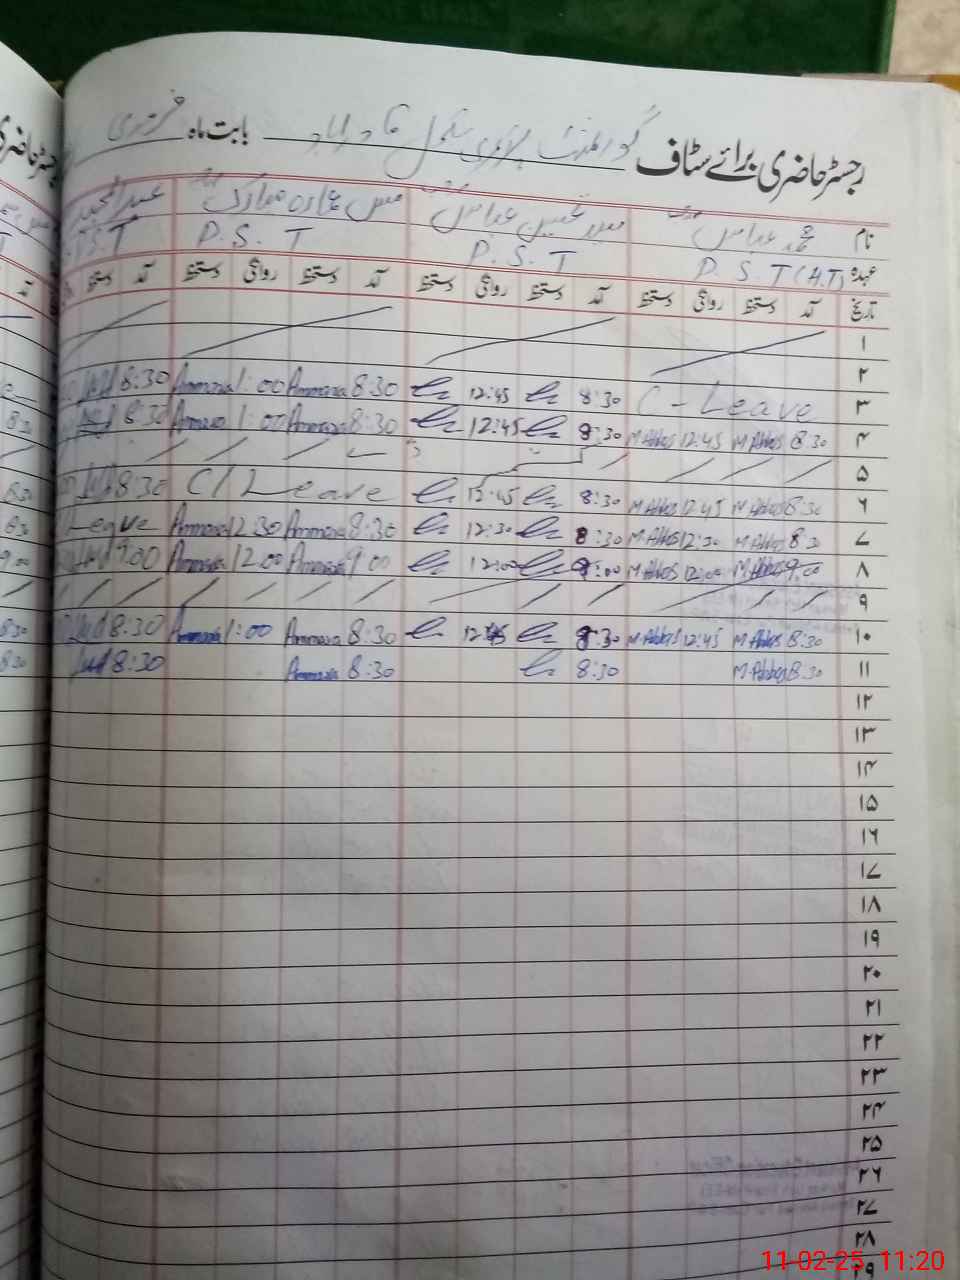 رجسٹر حاضری برائے سٹاف گورنمنٹ پرائمری سکول قادرآباد بابت ماہ فروری
نام محمد عباس عباس مس عمارہ مبارک عبدالمجید
عہدہ P.S.T (H.T) P.S.T P.S.T P.S.T
تاریخ آمد دستخط روانگی دستخط آمد دستخط روانگی دستخط آمد دستخط روانگی دستخط آمد دستخط
۱
۲
۳ C-Leave 8:30 12:45 8:30 Ammara 1:00 Ammara 8:30
۴ 8:30 M.Abbas 12:45 M.Abbas 8:30 12:45 8:30 Ammara 1:00 Ammara 8:30
۵
۶ 8:30 M.Abbas 12:45 M.Abbas 8:30 12:45 C/Leave 8:30
۷ 8:30 M.Abbas 12:30 M.Abbas 8:30 12:30 8:30 Ammara 12:30 Ammara Leave
۸ 9:00 M.Abbas 12:00 M.Abbas 9:00 12:00 9:00 Ammara 12:00 Ammara 9:00
۹
۱۰ 8:30 M.Abbas 12:45 M.Abbas 8:30 12:45 8:30 Ammara 1:00 Ammara 8:30
۱۱ 8:30 M.Abbas 8:30 8:30 Ammara 8:30
۱۲
۱۳
۱۴
۱۵
۱۶
۱۷
۱۸
۱۹
۲۰
۲۱
۲۲
۲۳
۲۴
۲۵
۲۶
۲۷
۲۸
۲۹
11-02-25, 11:20